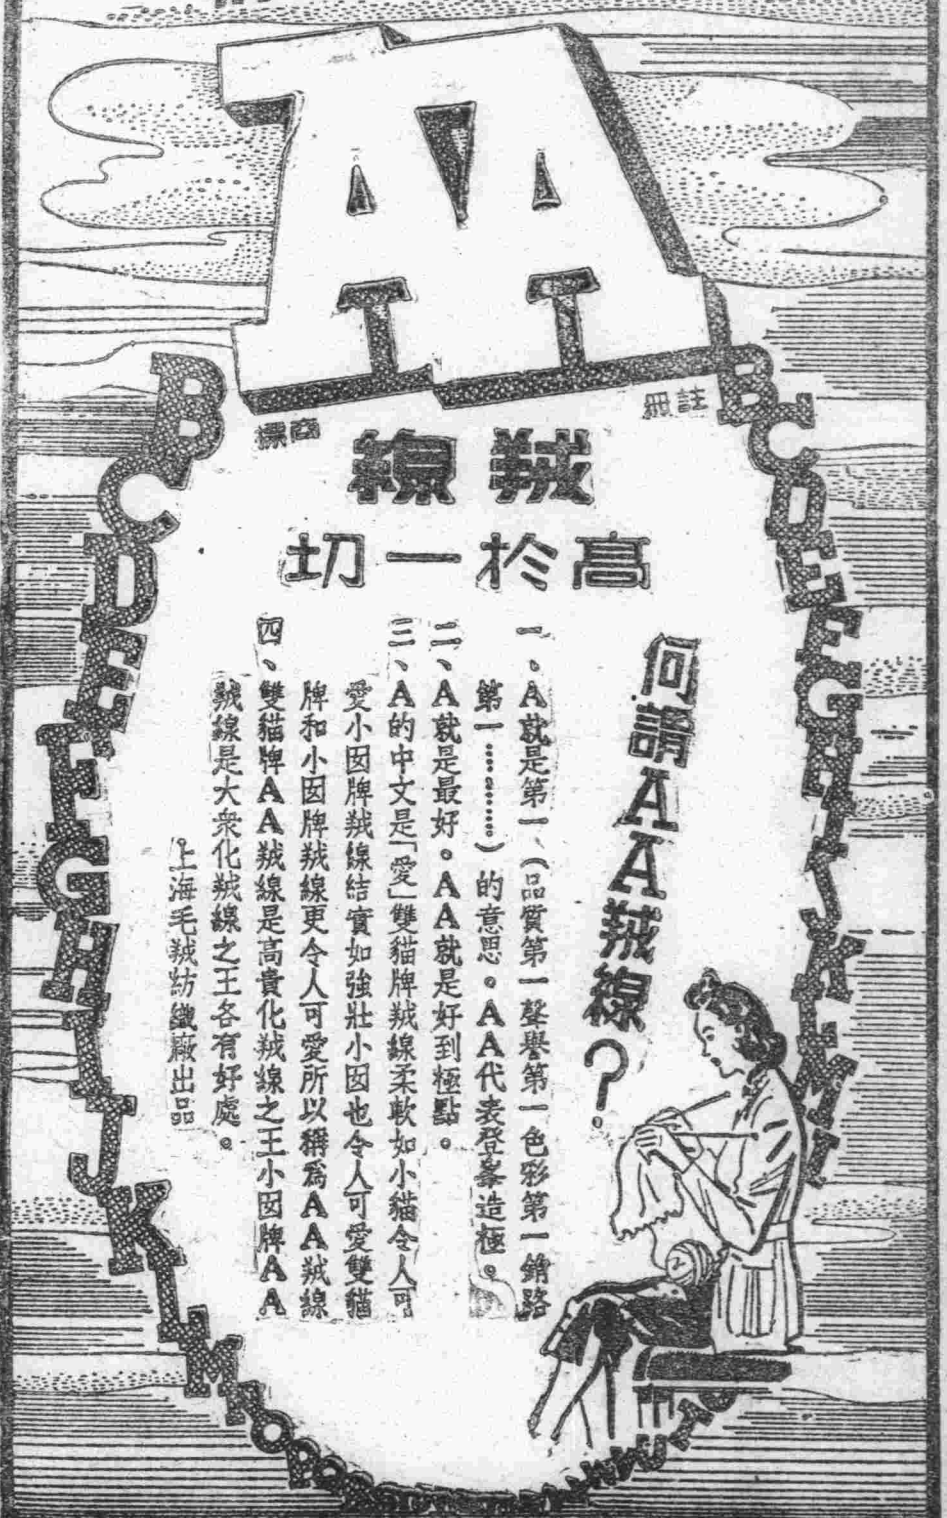 AA
註冊
商標
羢線
高於一切
何謂AA羢線？
一、A就是第一、（品質第一聲譽第一色彩第一銷路
第一…………）的意思。AA代表登峯造極。
二、A就是最好。AA就是好到極點。
三、A的中文是「愛」雙貓牌羢線柔軟如小貓令人可
愛小囡牌羢線結實如強壯小囡也令人可愛雙貓
牌和小囡牌羢線更令人可愛所以稱爲AA羢線
四、雙貓牌AA羢線是高貴化羢線之王小囡牌AA
羢線是大衆化羢線之王各有好處。
上海毛羢紡織廠出品
BCDEFGHIJKLM
BCDEFGHIJKLM